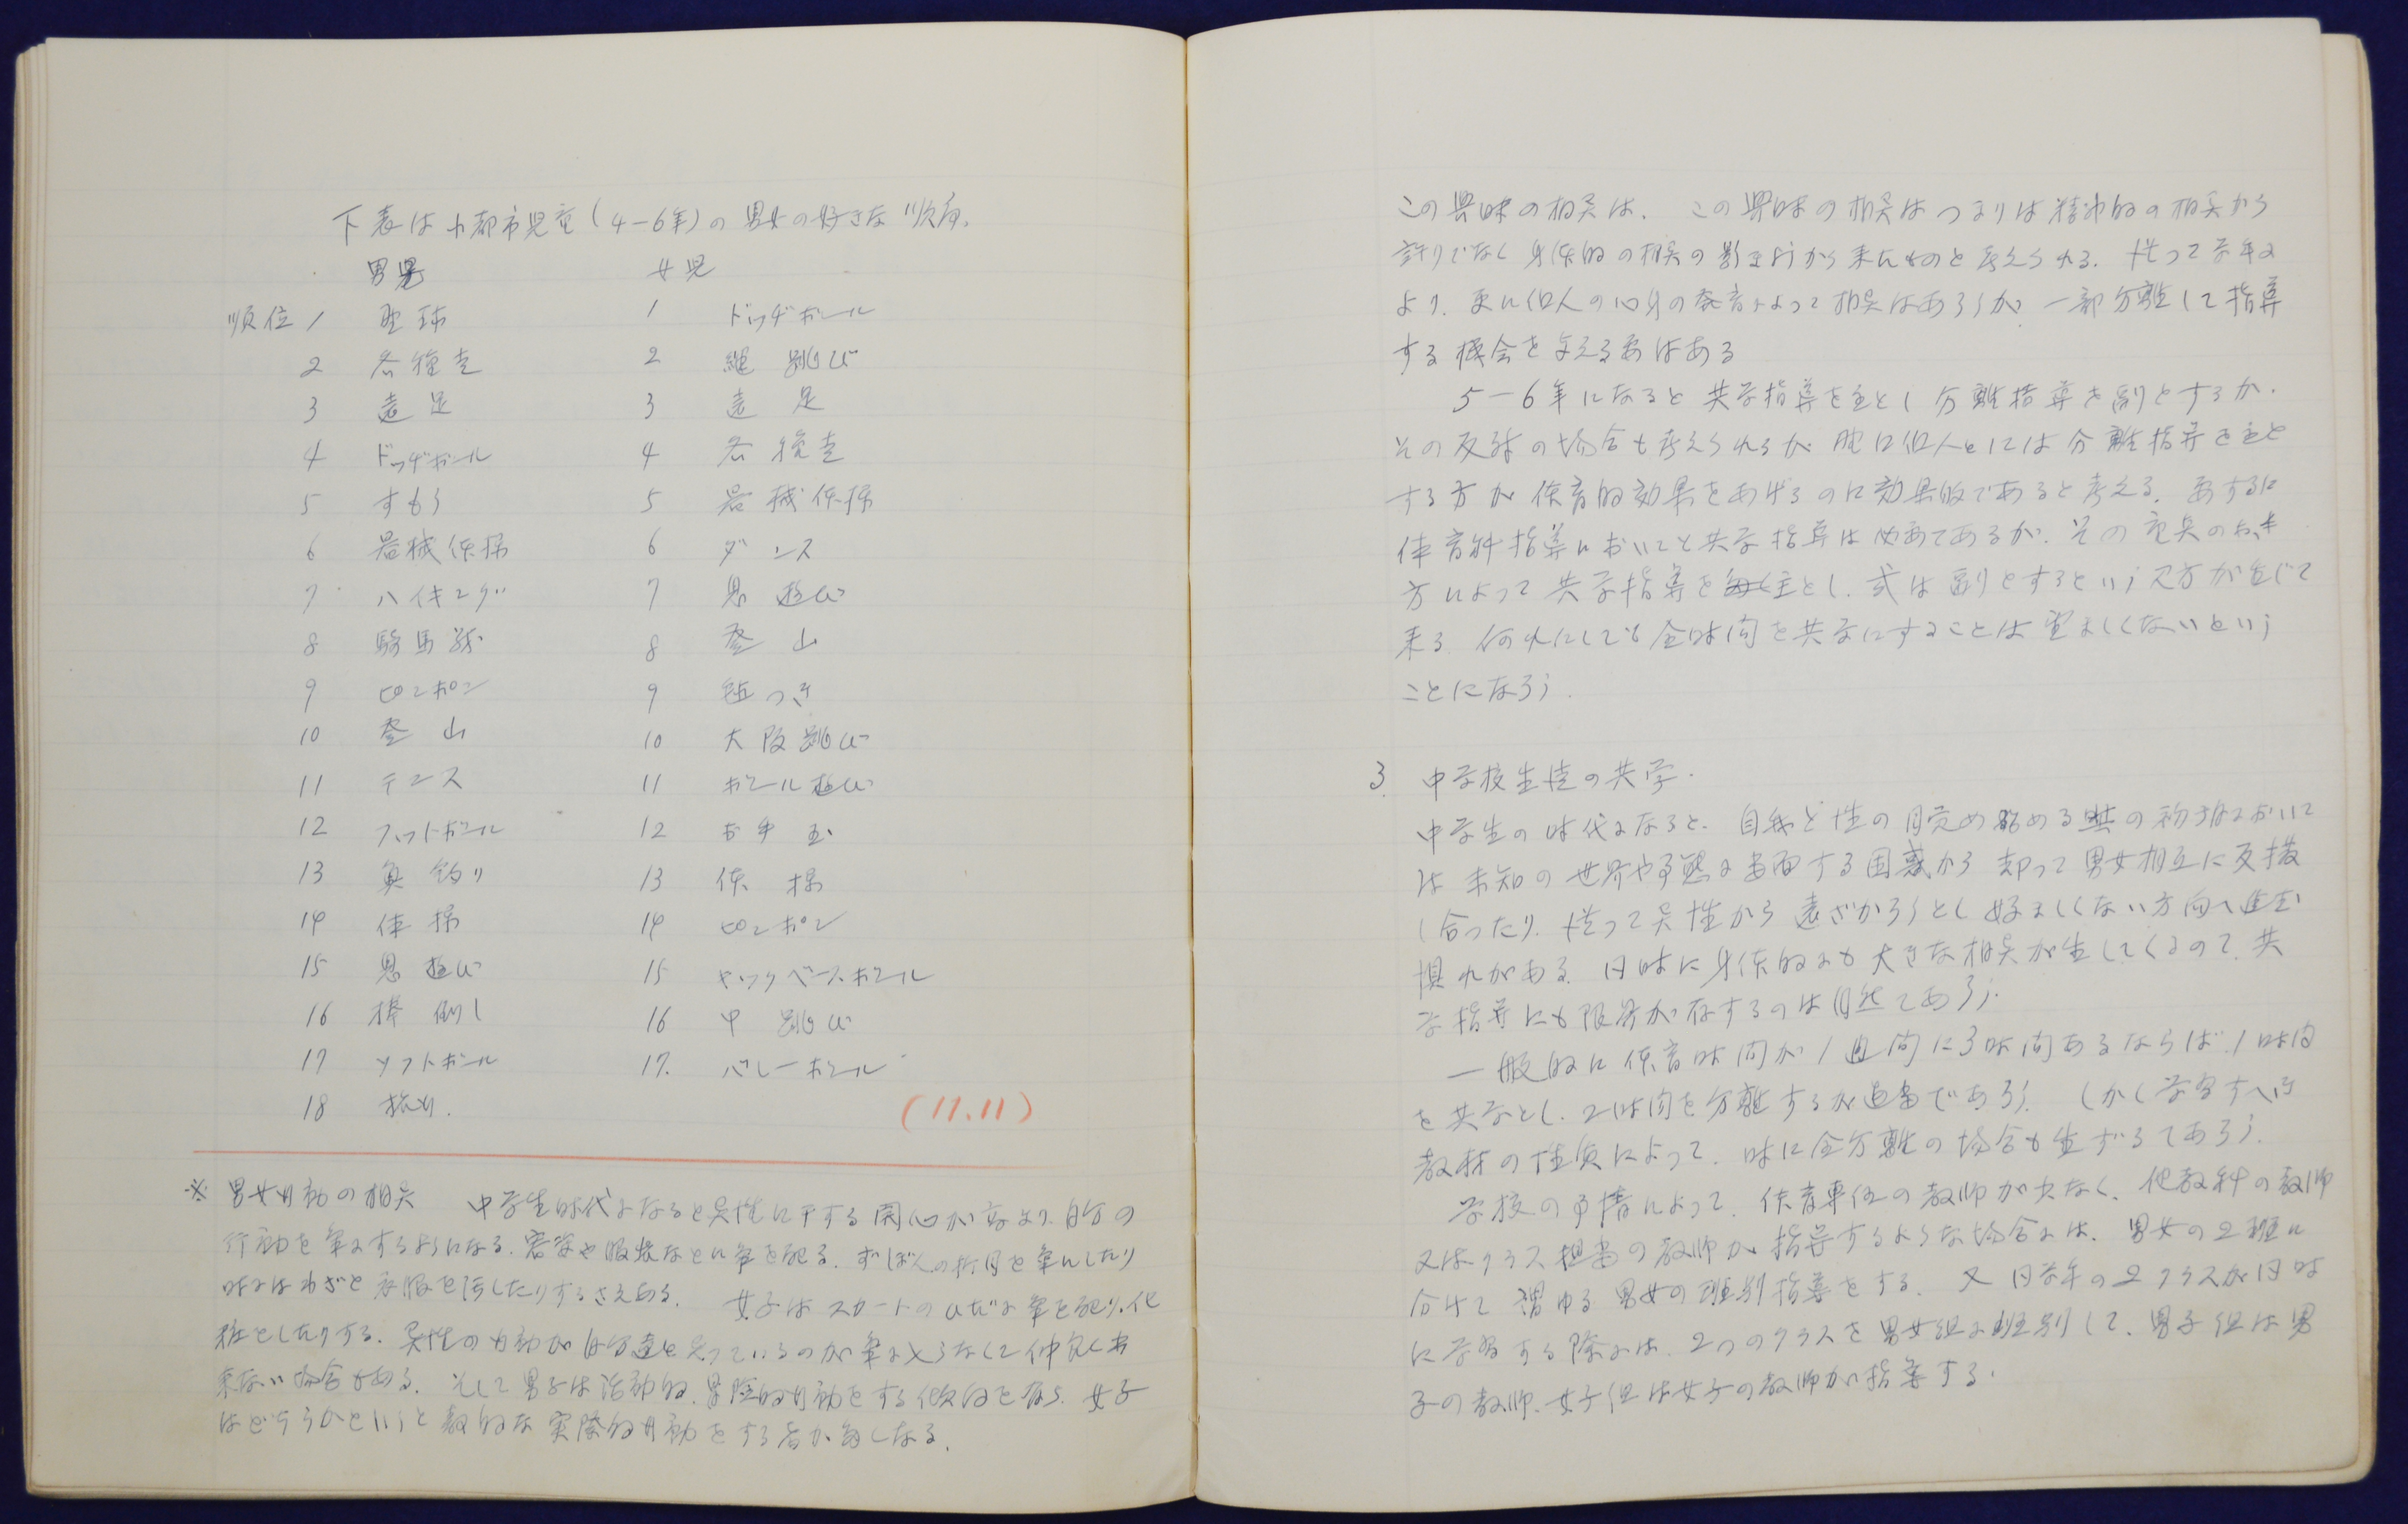 下表は小都市児童(4-6年)の男女の好きな順角.
男児 女児
順位1 野球 1 ドッヂボール
2 各種走 2 縄跳び
3 遠足 3 遠足
4 ドッヂボール 4 各種走
5 すもう 5 器械体操
6 器械体操 6 ダンス
7 ハイキング 7 鬼遊び
8 騎馬戦 8 登山
9 ピンポン 9 毬つき
10 登山 10 大阪跳び
11 テニス 11 ボール遊び
12 フットボール 12 お手玉
13 魚釣り 13 体操
14 体操 14 ピンポン
15 鬼遊び 15 キックベースボール
16 棒倒し 16 中跳び
17 ソフトボール 17. バレーボール
18
(11.11)
※ 男女の相异 中学生時代になると异性に干する関心が高より自分の
行動を気にするようになる. 容姿や服装などに気を配る. ずぼんの折目を気にしたり
時にはわざと衣服を汚したりするさえある. 女子はスカートのひだに気を配り、化
粧をしたりする. 异性の が自分達を見ているのが気に なくて仲良く出
来ない場合がある. そして男子は活動的、冒険的 をする傾向を有ら. 女子
はどうらかというと 的な実際的 をする者が多くなる.
この興味の相异は. この興味の相异はつまりは精神的の相异から
許りでなく身体的の相异の影きょうから来たものと考えられる. 従って学年に
より. 更に個人の心身の発育によって相异はあろうが 一部分離して指導
する機会を与える要はある
5-6年になると共学指導を主とし分離指導を副とするか.
その反対の場合も考えられるが には分離指導を主と
する方が体育的効果をあげるのに効果的であると考える. 要するに
体育科指導においてと共学指導は必要であるが. その のおき
方によって共学指導を主とし. 或は副とするという え方が生じて
来る 何れにしても全時间を共学にすることは望ましくないという
ことになろう.
3. 中学校生徒の共学.
中学生の時代になると. 自我と性の目覚め始める の初期において
は未知の世界や事態に当面する困惑から却って男女相互に反撥
し合ったり. 従って异性から遠ざかろうとし好ましくない方向へ進む
惧れがある. 同時に身体的にも大きな相异が生してくるので. 共
学指導にも限界が存するのは自然であろう.
一般的に体育時间が1週间に3時间あるならば. 1時间
を共学とし. 2時间を分離するが適当であろう. しかし学習すべき
教材の性質によって. 時に全分離の場合も生ずるであろう.
学校の事情によって. 体育専任の教師が少なく. 他教科の教師
又はクラス担当の教師が指導するような場合には. 男女の2班に
分けて謂ゆる男女の班別指導をする. 又同学年の2クラスが同時
に学習する際には. 2つのクラスを男女組に班別して. 男子組は男
子の教師. 女子組は女子の教師が指導する.